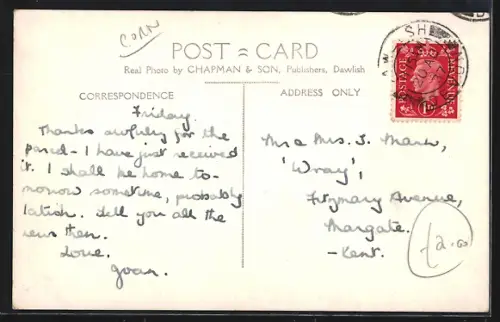 CORN
POST CARD
Real Photo by CHAPMAN & SON, Publishers, Dawlish
CORRESPONDENCE
ADDRESS ONLY
POSTAGE REVENUE
Friday.
Thanks awfully for the
parcel - I have just received
it. I shall be home to-
morrow sometime, probably
latish. Tell you all the
news then.
Love.
Joan.
Mr & Mrs. J.
'Wray',
Fitzmary Avenue,
Margate.
- Kent.
£2.00